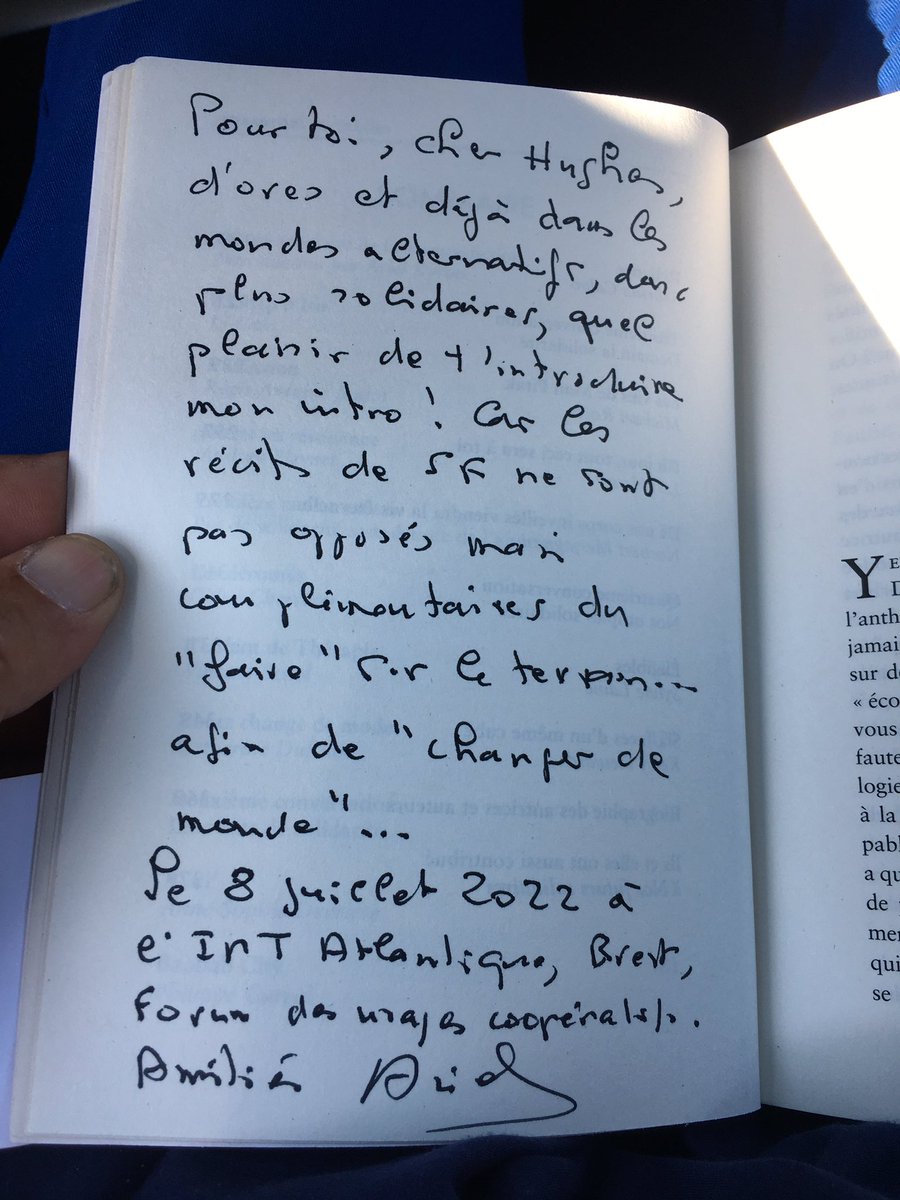 Pour toi, cher Hughes,
d'ores et déjà dans les
mondes alternatifs, donc
plus solidaires, quel
plaisir de t'introduire
mon intro ! Car les
récits de SF ne sont
pas opposés mais
complimentaires du
"faire" sur le terrain...
afin de "changer de
monde"...
Le 8 juillet 2022 à
l'IMT Atlantique, Brest,
Forum des usages coopératifs.
Amitiés
Y
l'anth
jamai
sur de
« éco
vous
faute
logie
à la
pabl
a qu
de
mer
qui
se